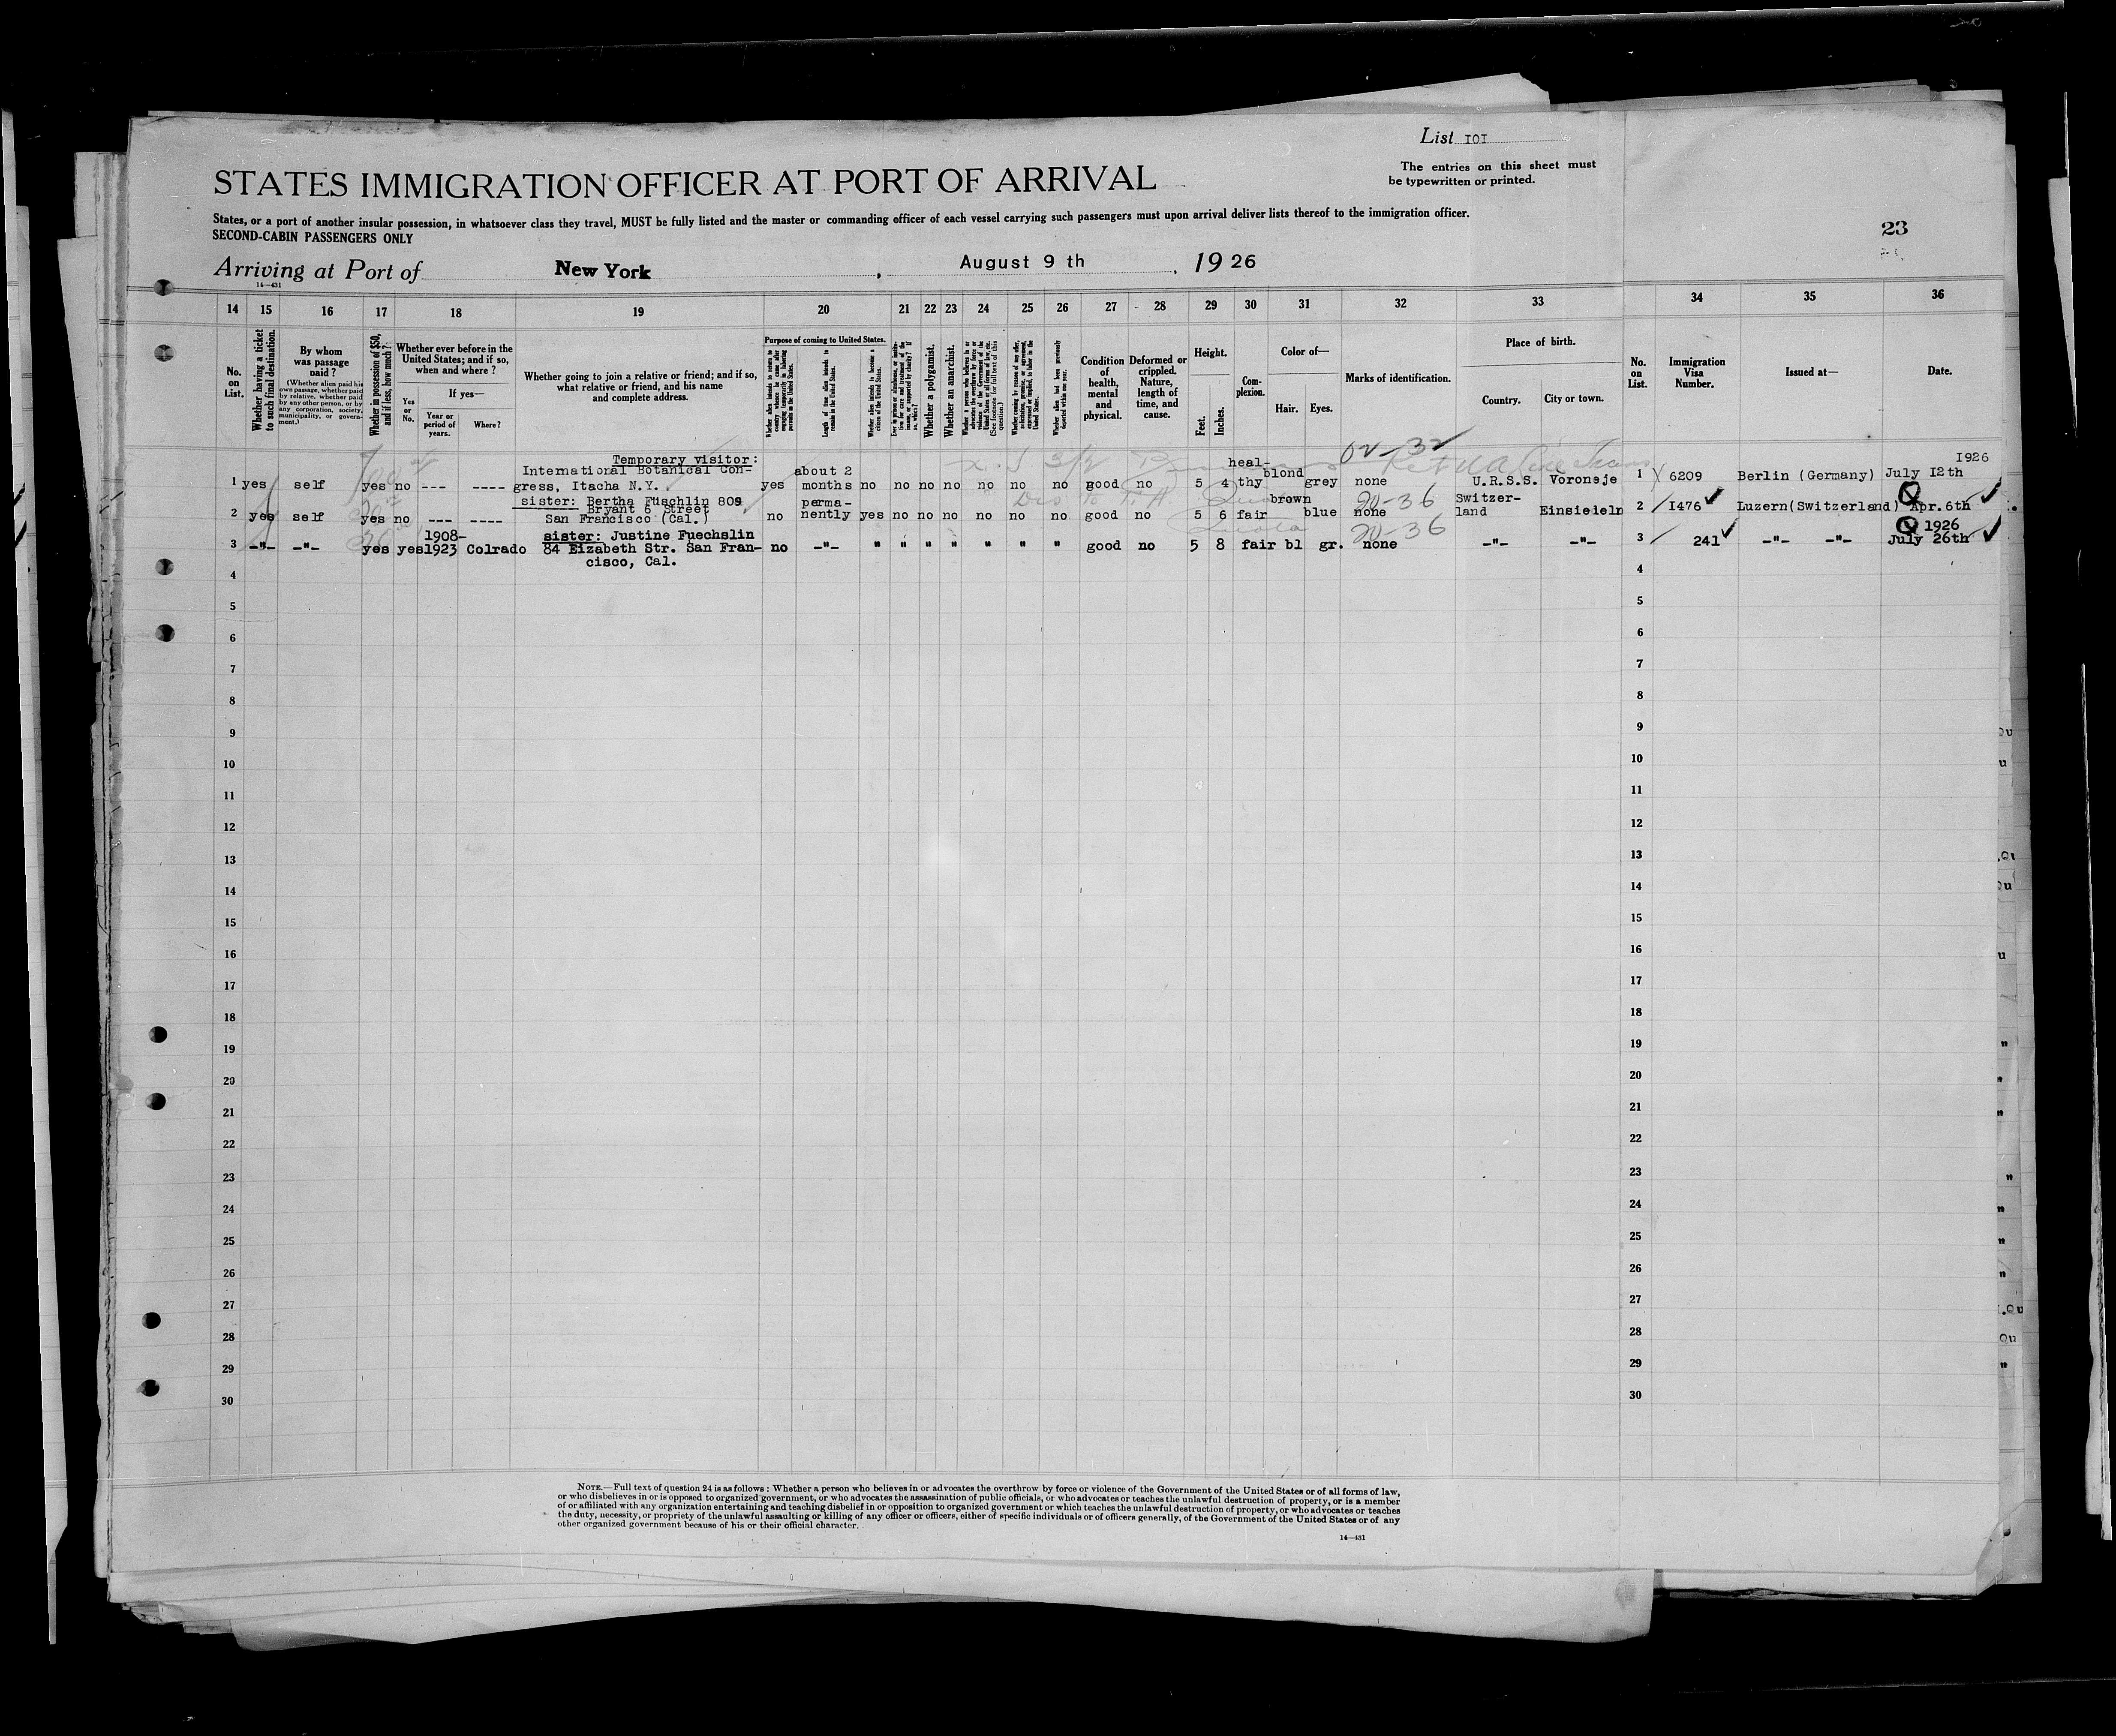 List IOI
The entries on this sheet must
be typewritten or printed.
STATES IMMIGRATION OFFICER AT PORT OF ARRIVAL
States, or a port of another insular possession, in whatsoever class they travel, MUST be fully listed and the master or commanding officer of each vessel carrying such passengers must upon arrival deliver lists thereof to the immigration officer.
SECOND-CABIN PASSENGERS ONLY
23
Arriving at Port of New York, August 9 th, 19 26
14—431
14 15 16 17 18 19 20 21 22 23 24 25 26 27 28 29 30 31 32 33 34 35 36
No. on List.
Whether having a ticket to such final destination.
By whom was passage paid?
(Whether alien paid his own passage, whether paid by relative, whether paid by any other person, or by any corporation, society, municipality, or government.)
Whether in possession of $50, and if less, how much?
Whether ever before in the United States; and if so, when and where?
If yes—
Yes or No.
Year or period of years.
Where?
Whether going to join a relative or friend; and if so, what relative or friend, and his name and complete address.
Purpose of coming to United States.
Whether alien intends to return to country whence he came after engaging temporarily in laboring pursuits in the United States.
Length of time alien intends to remain in the United States.
Whether alien intends to become a citizen of the United States.
Whether a polygamist.
Whether an anarchist.
Whether alien had been previously deported within one year.
Condition of health, mental and physical.
Deformed or crippled. Nature, length of time, and cause.
Height.
Feet.
Inches.
Complexion.
Color of—
Hair.
Eyes.
Marks of identification.
Place of birth.
Country.
City or town.
No. on List.
Immigration Visa Number.
Issued at—
Date.
02-32
Temporary visitor:
1 yes self yes no --- ---- International Botanical Con-
gress, Itacha N.Y. yes about 2
months no no no no no no no good no 5 4 heal-
thy blond grey none U.R.S.S. Voroneje 1 6209 Berlin (Germany) July I2th 1926
2 yes self yes no --- ---- sister: Bertha Füschlin 809
Bryant 6 Street
San Francisco (Cal.) no perma-
nently yes no no no no no no good no 5 6 fair brown blue none 20-36 Switzer-
land Einsieleln 2 I476 Luzern(Switzerland) Apr.6th
3 -"- -"- yes yes 1908-
1923 Colrado sister: Justine Fuechslin
84 Eizabeth Str. San Fran-
cisco, Cal. no -"- " " " " " " " good no 5 8 fair bl gr. none 20-36 -"- -"- 3 241 -"- -"- 1926
July 26th
4 4
5 5
6 6
7 7
8 8
9 9
10 10
11 11
12 12
13 13
14 14
15 15
16 16
17 17
18 18
19 19
20 20
21 21
22 22
23 23
24 24
25 25
26 26
27 27
28 28
29 29
30 30
NOTE.—Full text of question 24 is as follows: Whether a person who believes in or advocates the overthrow by force or violence of the Government of the United States or of all forms of law,
or who disbelieves in or is opposed to organized government, or who advocates the assassination of public officials, or who advocates or teaches the unlawful destruction of property, or is a member
of or affiliated with any organization entertaining and teaching disbelief in or opposition to organized government or which teaches the unlawful destruction of property, or who advocates or teaches
the duty, necessity, or propriety of the unlawful assaulting or killing of any officer or officers, either of specific individuals or of officers generally, of the Government of the United States or of any
other organized government because of his or their official character.
14—431